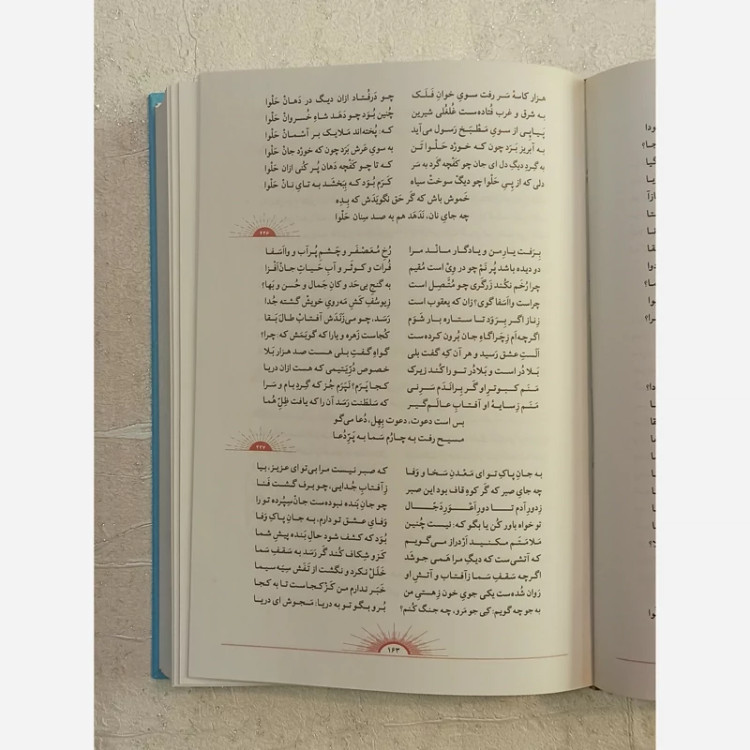 هزار کاسهٔ سَر رفت سویِ خوانِ فَلَک چو دَرفُتاد ازان دیگ در دَهانْ حَلْوا
به شرق و غرب فُتاده‌ست غُلغُلی شیرین چُنین بُوَد چو دَهَد شاهِ خُسروانْ حَلْوا
پَیاپی از سویِ مَطْبَخْ رَسول می‌آید که: پُخته‌اند مَلایِک بر آسْمانْ حَلْوا
به آبریز بَرَد چون که خورْد حَلْوا تَن به سویِ عَرش بَرَد چون که خورْد جانْ حَلْوا
به گِردِ دیگِ دل ای جان چو کفْچه گَرد به سَر که تا چو کفْچه دَهان پُر کُنی ازان حَلْوا
دلی که از پِیِ حَلْوا چو دیگْ سوخْت سیاه کَرَم بُوَد که بِبَخشَد به تایِ نانْ حَلْوا
خَموش باش که گَر حَق نگویَدَش که بِدِه
چه جایِ نان، نَدَهَد هم به صد سِنان حَلْوا
۲۲۶
بِرَفت یارِ من و یادگار مانْد مرا رُخِ مُعَصْفَر و چَشمِ پُرآب و وااَسَفا
دو دیده باشد پُر نَمْ چو در وِیْ است مُقیم فُرات و کوثَر و آبِ حَیاتِ جانْ‌اَفْزا
چرا رُخَم نکُند زَرگَری چو مُتَّصِل است به گنجِ بی‌حَد و کانِ جَمال و حُسن و بَها؟
چراست وااَسَفا گوی؟ زان که یعقوب است زِیوسُفِ کَشِ مَه‌رویِ خویشْ گشته جُدا
زِناز اگر بِرَوَد تا سِتاره بار شَوَم رَسَد، چو می‌زَنَدَش آفتابْ طالَ بَقا
اگرچه اَم زِچَراگاهِ جان بُرون کرده‌ست کُجاست زَهره و یارا که گویَمَش که: چرا؟
اَلَستِ عشق رَسید و هر آن که گفت بَلی گواهِ گفتِ بَلی هست صد هزار بَلا
بَلا دُر است و بَلادُر تو را کُند زیرَک خصوص دُرِّ یَتیمی که هست ازان دریا
مَنَم کبوترِ او گَر بِرانَدَم سَرِ نِی کجا پَرَم؟ نَپَرَم جُز که گِردِ بام و سَرا
مَنَم زِسایهٔ او آفتابِ عالَم‌گیر که سَلطَنَت رَسَد آن را که یافت ظِلِّ هُما
بس است دعوت، دعوت بِهِل، دُعا می‌گو
مسیح رفت به چارُم سَما به پَرِّ دُعا
۲۲۷
به جانِ پاکِ تو ای مَعْدَنِ سَخا و وَفا که صبر نیست مرا بی‌تو ای عزیز، بیا
چه جایِ صبر که گَر کوهِ قاف بود این صبر زِآفتابِ جُدایی، چو برف گشت فَنا
زِدورِ آدم تا دورِ اَعْوَرِ دَجّال چو جانِ بَنده نبوده‌ست جانْ‌سِپُرده تو را
تو خواه باور کُن یا بگو که: نیست چُنین وَفایِ عشقِ تو دارم، به جانِ پاکِ وَفا
مَلامَتَم مَکُنید اَرْ دراز می‌گویم بُوَد که کشف شود حالِ بَنده پیشِ شما
که آتشی‌ست که دیگِ مرا هَمی جوشَد کَزو شِکاف کُند گَر رَسَد به سَقفِ سَما
اگرچه سَقفِ سَما زِآفتاب و آتشِ او خَلَلْ نکرد و نگشت از تَفَش سِیَه سیما
رَوان شُده‌ست یکی جویِ خون زِهستیِ من خَبَر ندارم من کَزْ کجاست تا به کجا
به جو چه گویم: کِی جو مَرو، چه جنگ کُنم؟ بُرو بگو تو به دریا: مَجوش ای دریا
۱۶۳